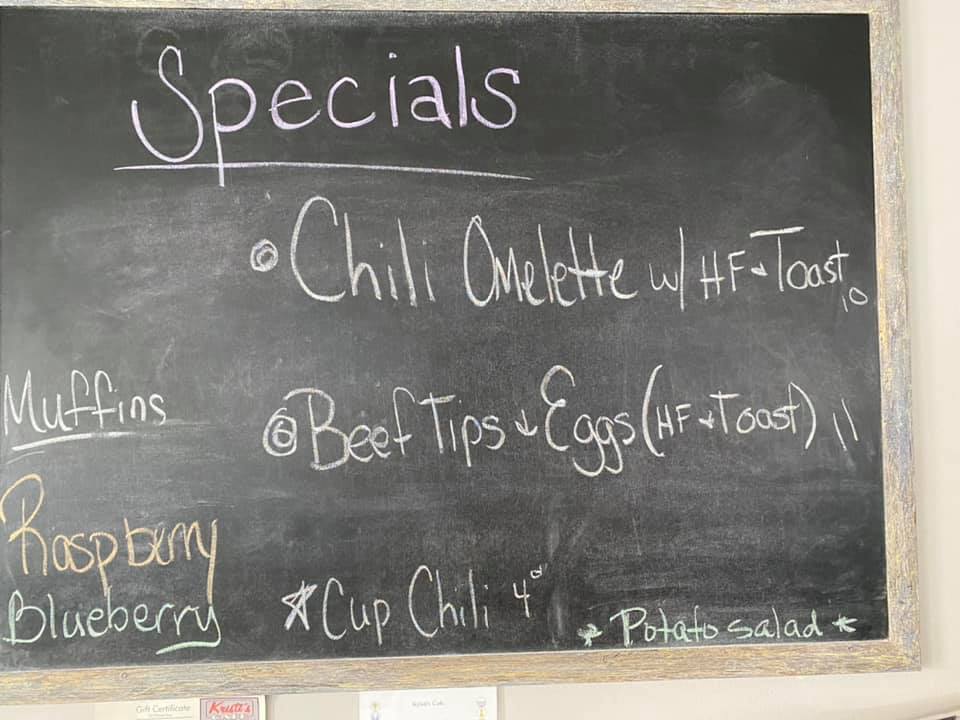 Specials
Chili Omelette w/ HF & Toast 10
Muffins
Beef Tips & Eggs (HF & Toast) 11
Raspberry
Blueberry
Cup Chili 4
* Potato salad *
Gift Certificate
Kristi's
Kristi's Cafe